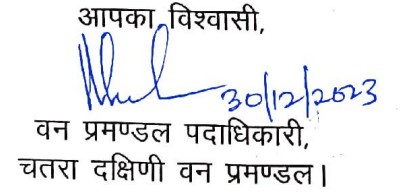 आपका विश्वासी,
30/12/2023
वन प्रमण्डल पदाधिकारी,
चतरा दक्षिणी वन प्रमण्डल।